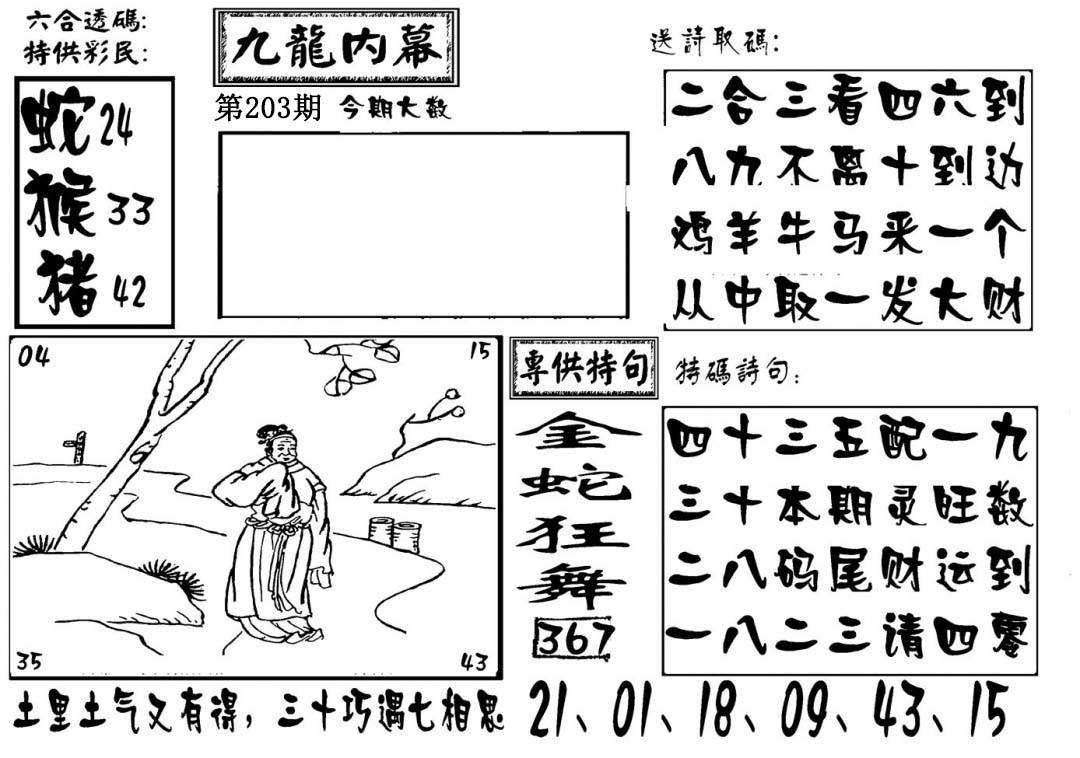 六合透碼:
特供彩民:
蛇24
猴33
猪42
九龍内幕
第203期 今期大数
送詩取碼:
二合三看四六到
八九不离十到边
鸡羊牛马来一个
从中取一发大财
04
15
35
43
専供特句
金
蛇
狂
舞
367
特碼詩句:
四十三五配一九
三十本期灵旺数
二八码尾财运到
一八二三请四零
土里土气又有得,三十巧遇七相思
21、01、18、09、43、15